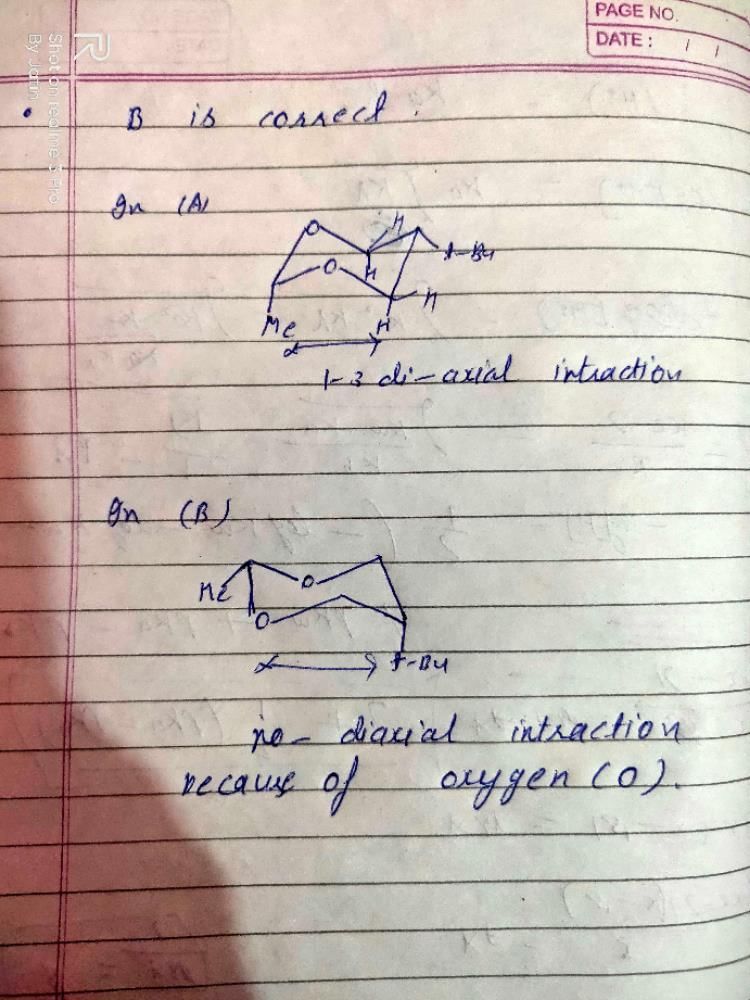 PAGE NO.
DATE : / /
R
Shot on realme 5 Pro
By Jatin
B is correct.
In (A)
O H
O H t-Bu
H
Me H
1-3 di-axial intraction
In (B)
Me O
O
t-Bu
no- diaxial intraction
because of oxygen (O).